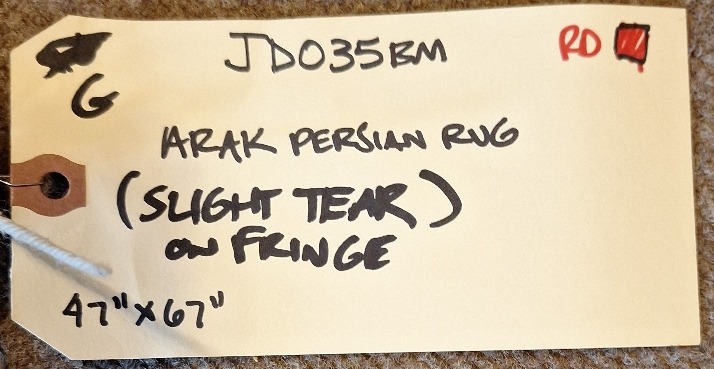 JD035BM RD
G
ARAK PERSIAN RUG
(SLIGHT TEAR)
ON FRINGE
47" x 67"